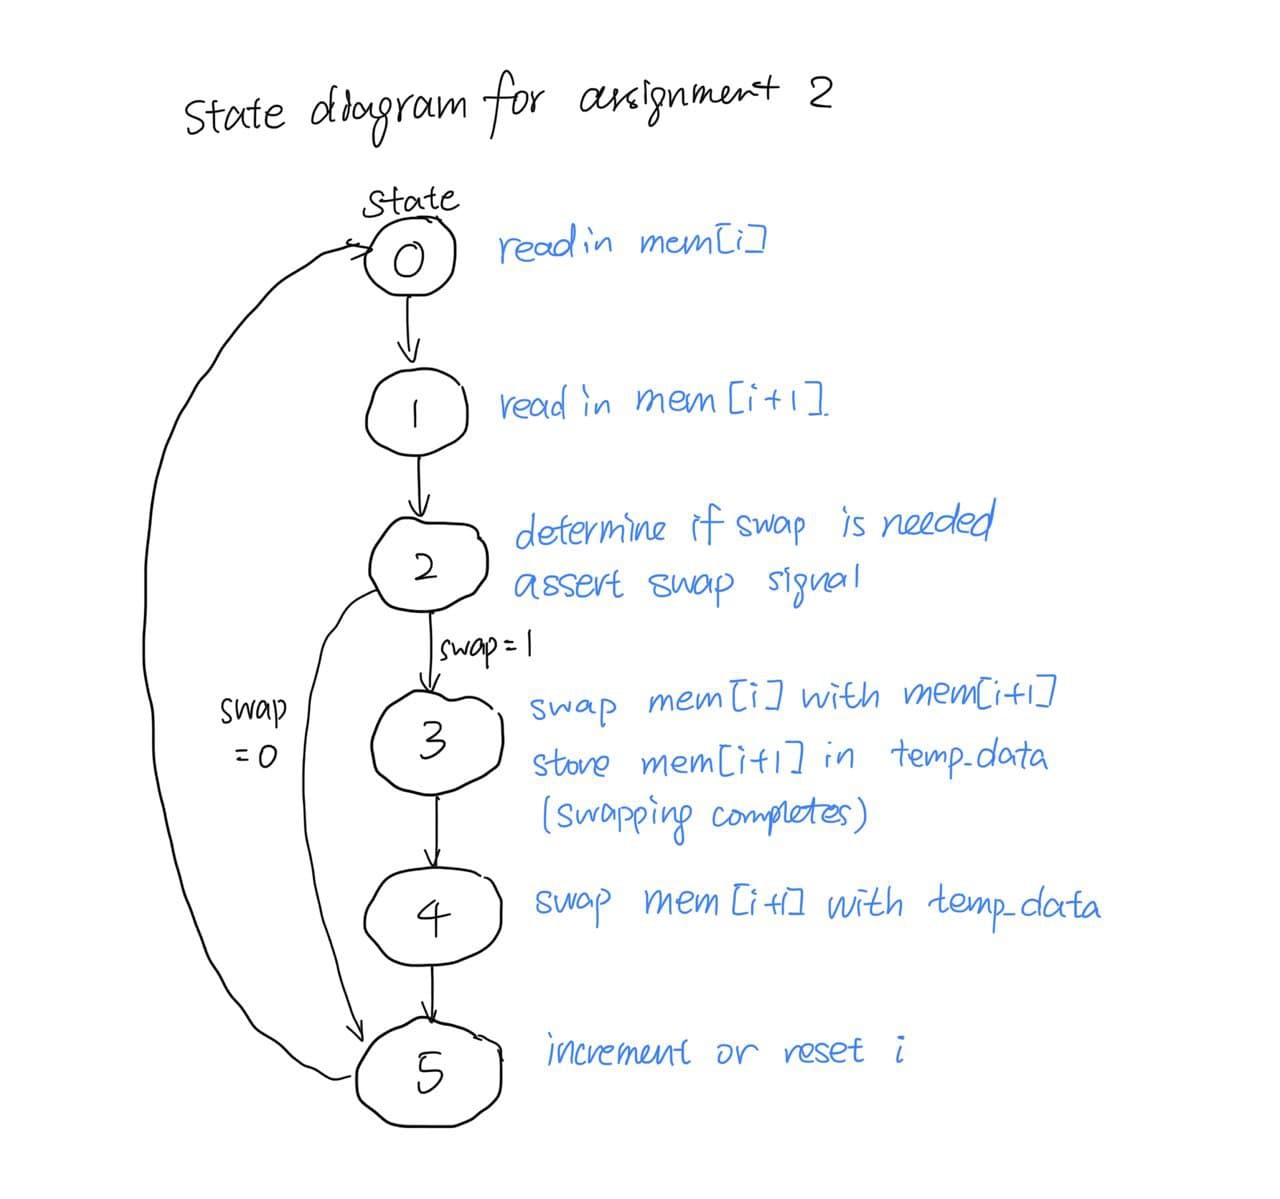 State diagram for assignment 2
State
0 read in mem[i]
1 read in mem[i+1].
2 determine if swap is needed
assert swap signal
swap=1
swap
=0
3 swap mem[i] with mem[i+1]
store mem[i+1] in temp_data
(swapping completes)
4 swap mem[i+1] with temp_data
5 increment or reset i